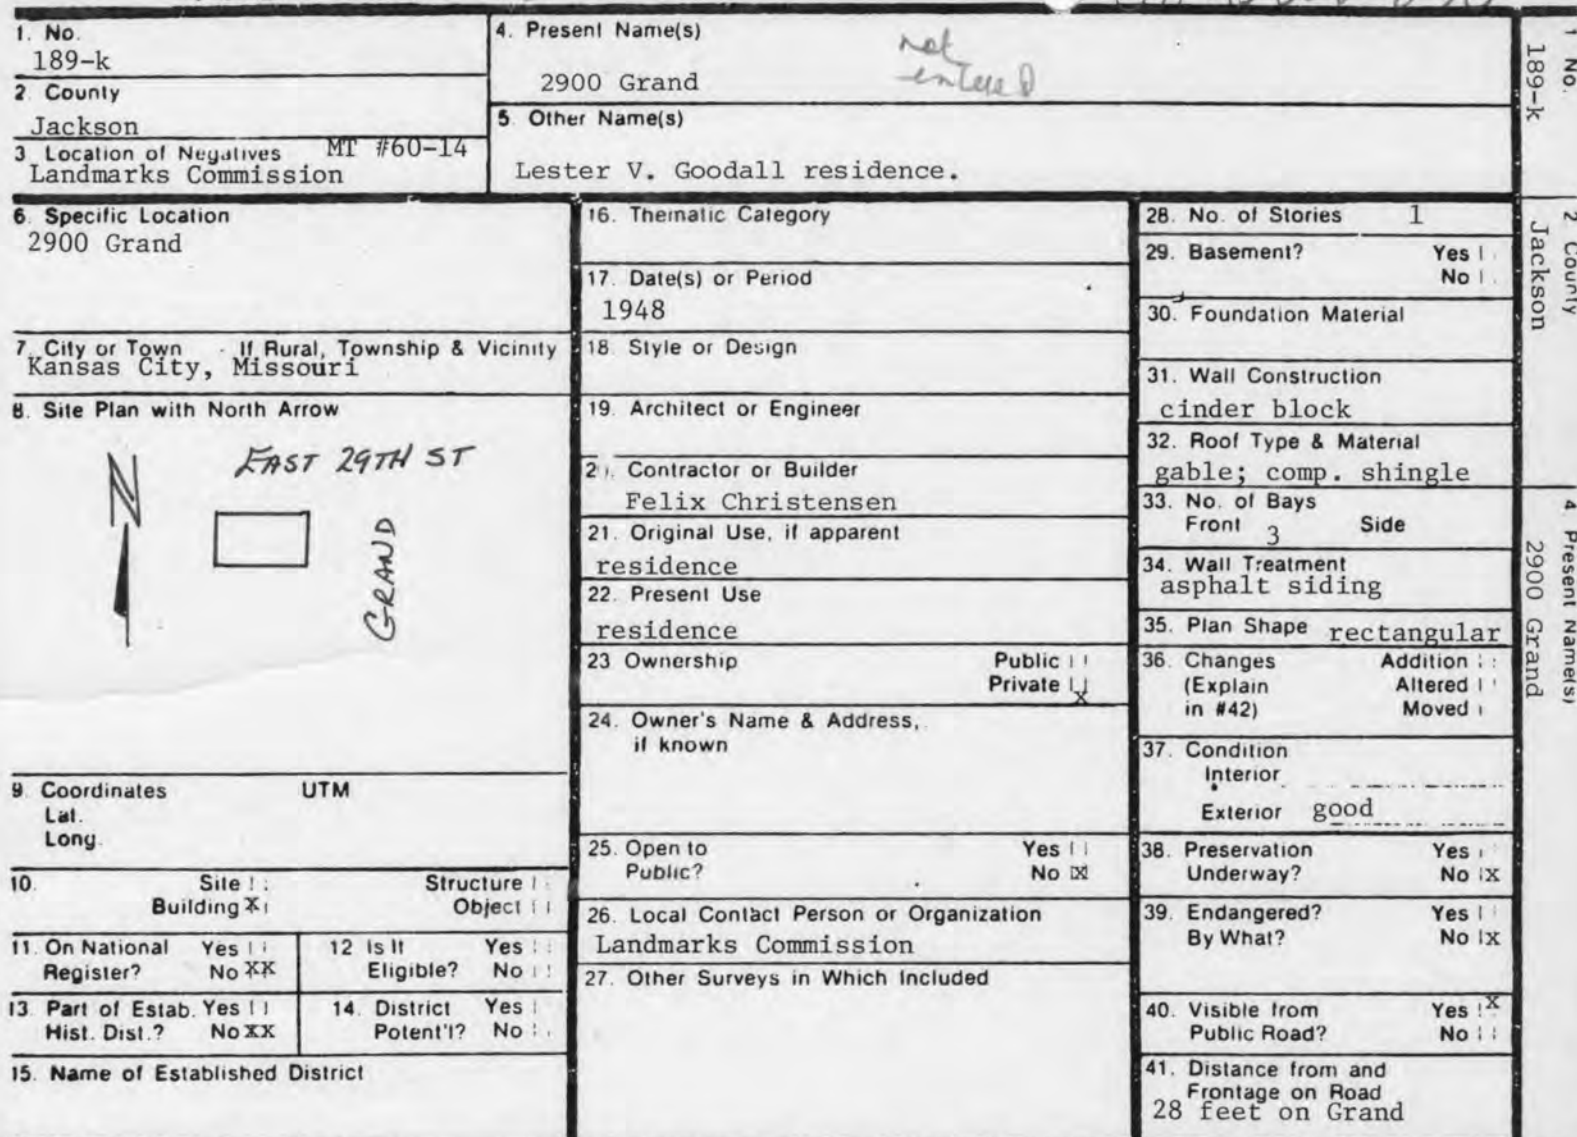 1. No.
189-k
2. County
Jackson
3. Location of Negatives MT #60-14
Landmarks Commission
4. Present Name(s)
2900 Grand
not
entered
5. Other Name(s)
Lester V. Goodall residence.
6. Specific Location
2900 Grand
7. City or Town If Rural, Township & Vicinity
Kansas City, Missouri
8. Site Plan with North Arrow
N
EAST 29TH ST
GRAND
9. Coordinates UTM
Lat.
Long.
10. Site Structure
Building X Object
11. On National Yes
Register? No XX
12 Is It Yes
Eligible? No
13. Part of Estab. Yes
Hist. Dist.? No XX
14. District Yes
Potent'l? No
15. Name of Established District
16. Thematic Category
17. Date(s) or Period
1948
18. Style or Design
19. Architect or Engineer
20. Contractor or Builder
Felix Christensen
21. Original Use, if apparent
residence
22. Present Use
residence
23 Ownership Public
Private X
24. Owner's Name & Address,
if known
25. Open to Yes
Public? No X
26. Local Contact Person or Organization
Landmarks Commission
27. Other Surveys in Which Included
28. No. of Stories 1
29. Basement? Yes
No
30. Foundation Material
31. Wall Construction
cinder block
32. Roof Type & Material
gable; comp. shingle
33. No. of Bays
Front 3 Side
34. Wall Treatment
asphalt siding
35. Plan Shape rectangular
36. Changes Addition
(Explain Altered
in #42) Moved
37. Condition
Interior
Exterior good
38. Preservation Yes
Underway? No X
39. Endangered? Yes
By What? No X
40. Visible from Yes X
Public Road? No
41. Distance from and
Frontage on Road
28 feet on Grand
1 No.
189-k
2 County
Jackson
4 Present Name(s)
2900 Grand